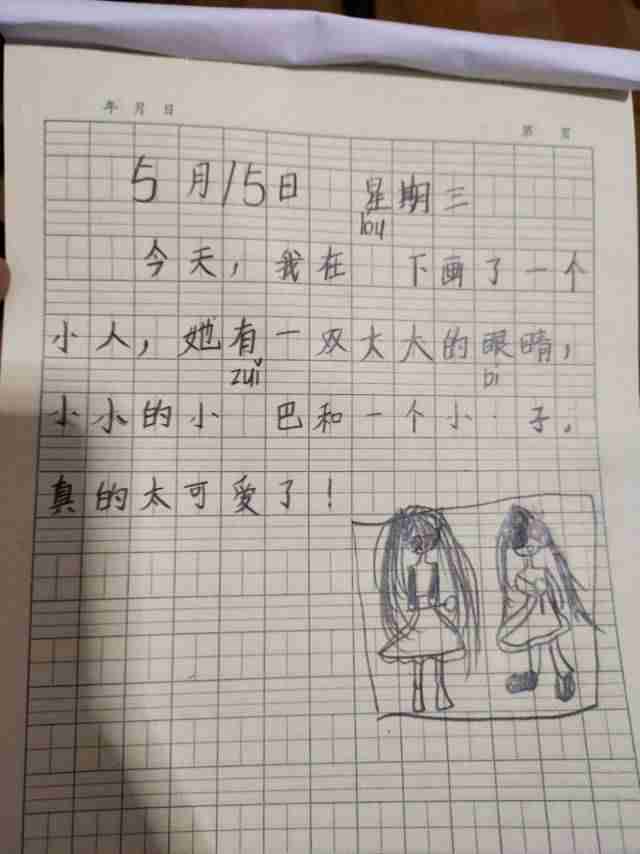 年 月 日
第 页
5月15日 星期三
bu
今天，我在 下画了一个
小人，她有一双大大的眼睛，
zuǐ bi
小小的小 巴和一个小 子。
真的太可爱了！